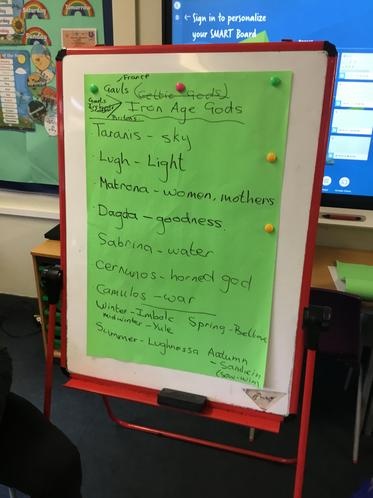 Saturday
Tomorrow
Sign in to personalize
your SMART Board
France
Gauls (Celtic Gods)
Iron Age Gods
Britons
Taranis - sky
Lugh - Light
Matrona - women, mothers
Dagda - goodness.
Sabrina - water
Cernunos - horned god
Camulos - war
Winter - Imbolc Spring - Beltane
midwinter - Yule
Summer - Lughnassa Autumn
- Sanhein
(sow-win)